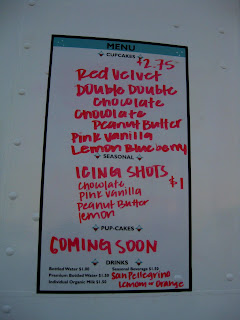 MENU
CUPCAKES $2.75
Red Velvet
Double Double
Chocolate
Chocolate
Peanut Butter
Pink Vanilla
Lemon Blueberry
SEASONAL
ICING SHOTS
Chocolate $1
Pink Vanilla
Peanut Butter
lemon
PUP-CAKES
COMING SOON
DRINKS
Bottled Water $1.00 Seasonal Beverage $1.50
Premium Bottled Water $1.50 San Pellegrino
Individual Organic Milk $1.50 Lemon or Orange